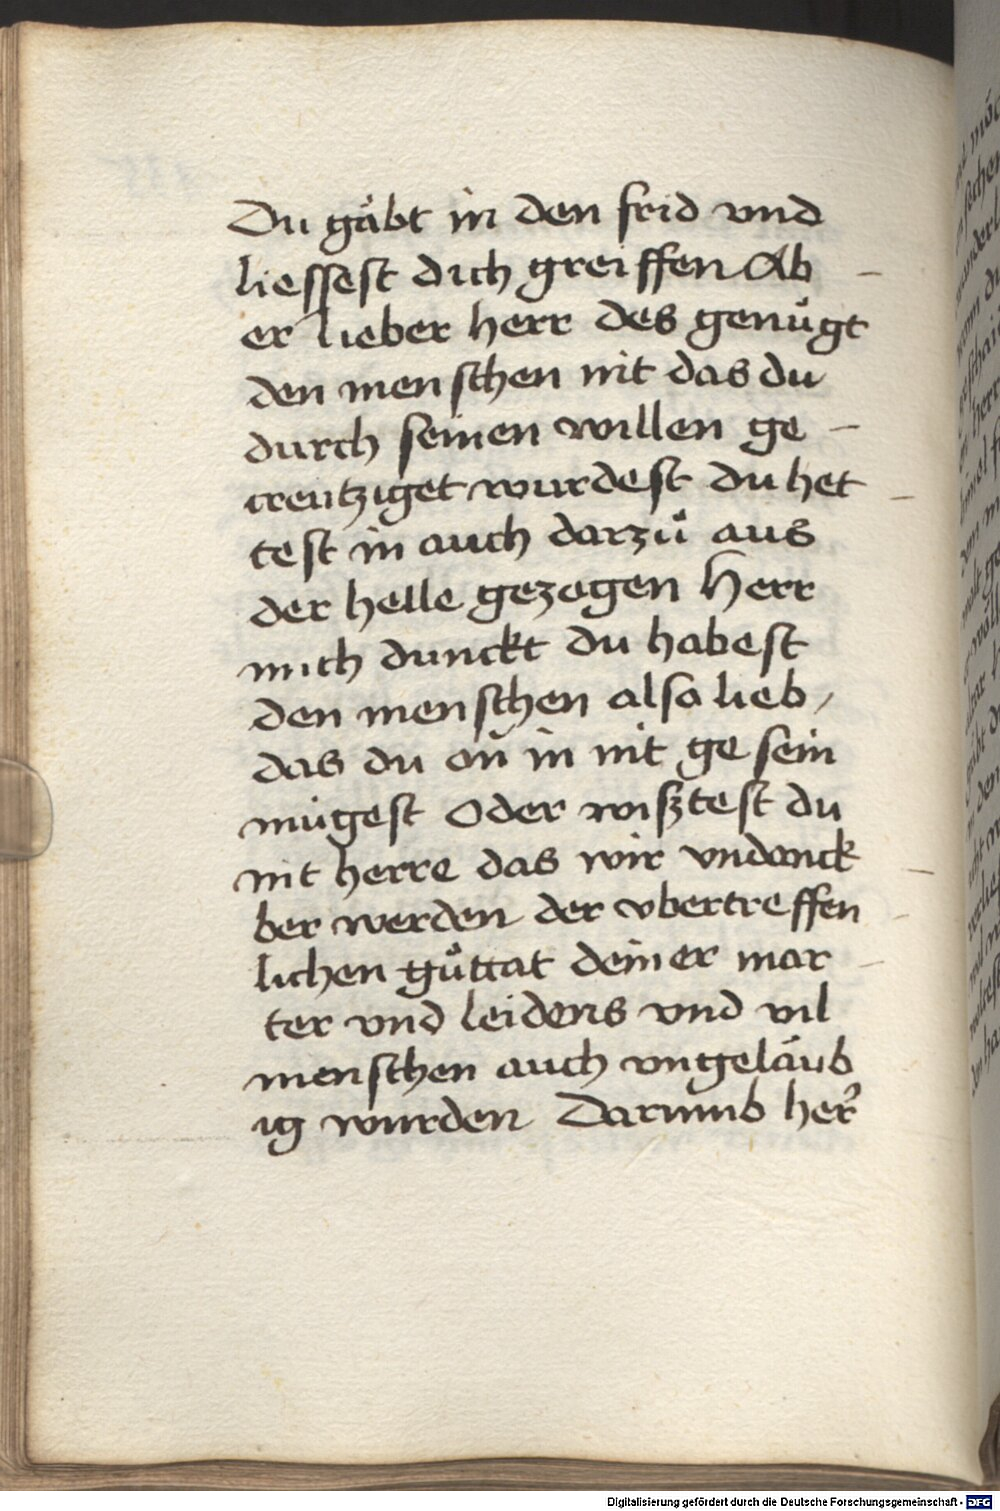 Du gåbt in den frid vnd
liessest dich greiffen Ab –
er lieber herr des genůgt
den menschen nit das du
durch seinen willen ge –
creutziget wurdest du het –
test in auch darzů aus
der helle gezogen Herr
mich dunckt du habest
den menschen also lieb /
das du on in nit gesein
mugest Oder wisztest du
nit herre das wir vndanck –
ber werden der vbertreffen –
lichen gůttat deiner mar –
ter vnd leidens vnd vil
menschen auch vngeläub
ig wurden Darumb her
Digitalisierung gefördert durch die Deutsche Forschungsgemeinschaft - DFG